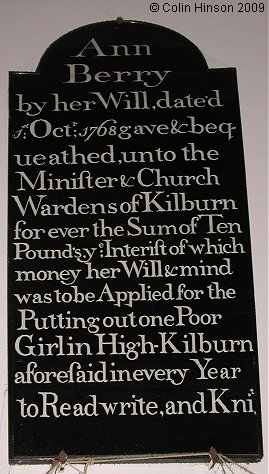 © Colin Hinson 2009
Ann
Berry
by her Will, date'd
1ˢᵗ; Octʳ; 1768 gave & beq-
ueathed, unto the
Miniſter & Church
Wardens of Kilburn
for ever the Sum of Ten
Pound's; yᵉ; Interiſt of which
money her Will & mind
was to be Applied for the
Putting out one Poor
Girl in High-Kilburn
aforeſaid in every Year
to Read write, and Kniᵗ.